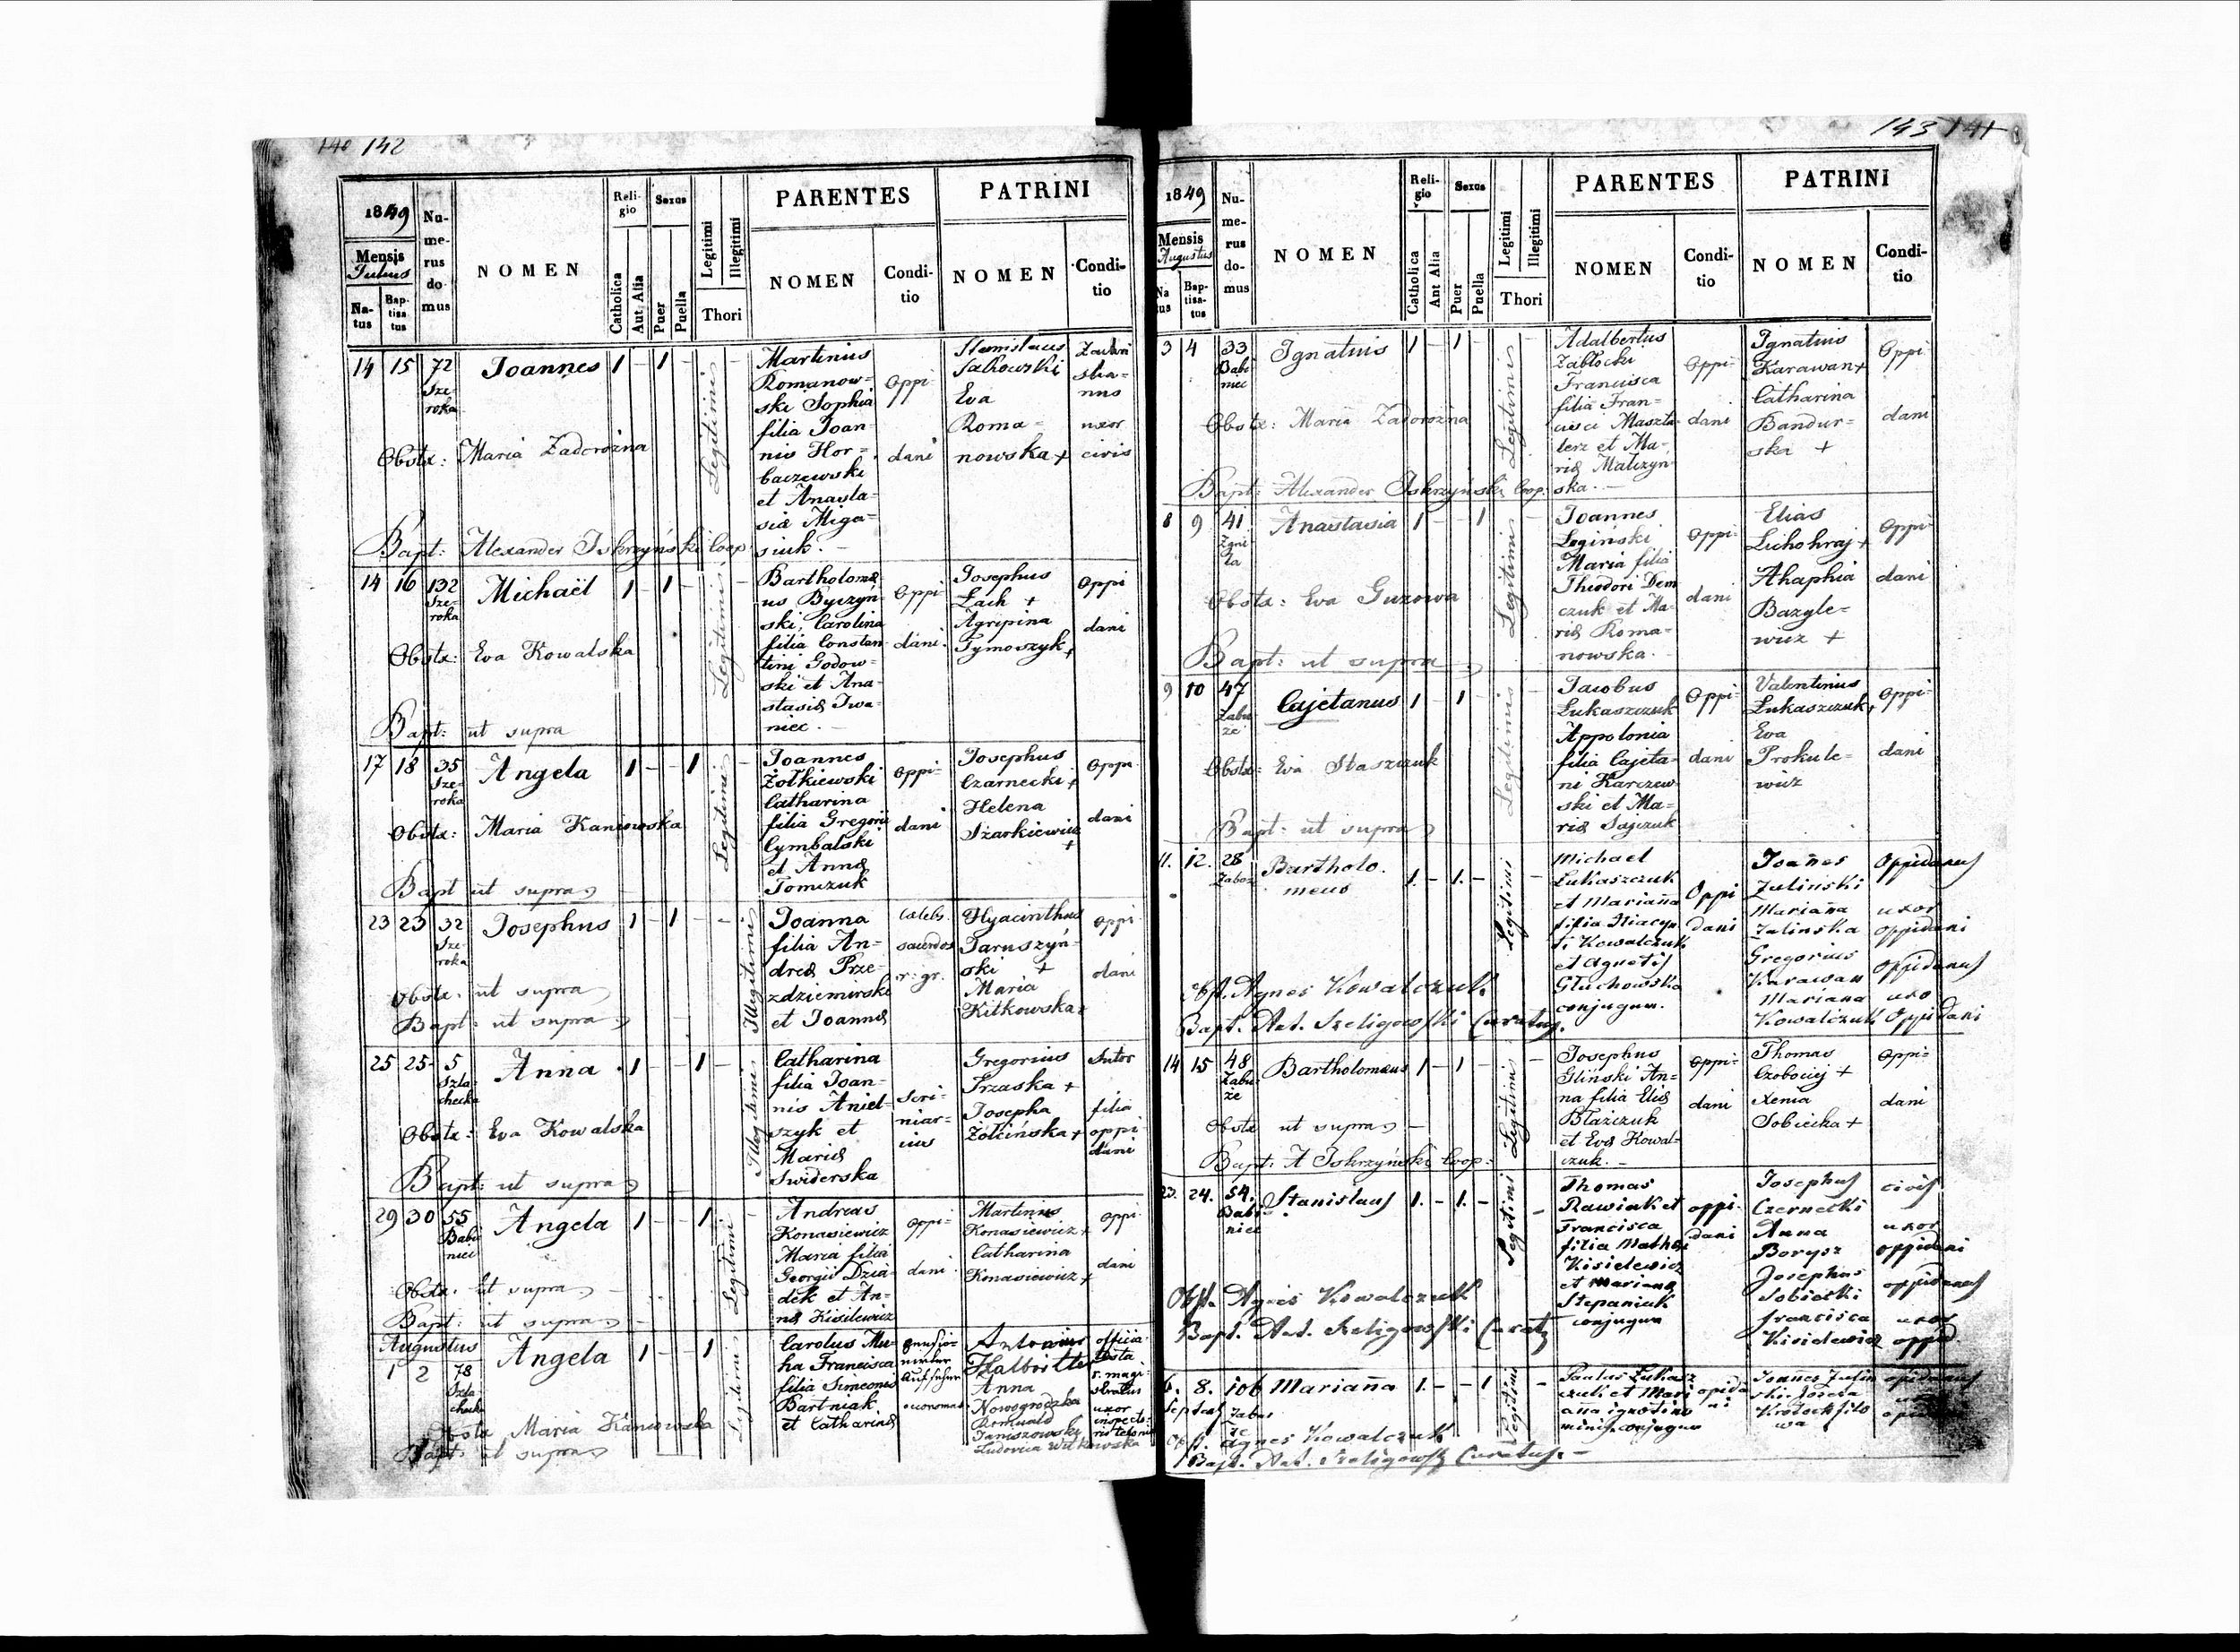 142
1849
Mensis
Julius
Na-
tus
Bap-
tisa-
tus
Nu-
me-
rus
do-
mus
NOMEN
Reli-
gio
Catholica
Aut Alia
Sexus
Puer
Puella
Legitimi
Illegitimi
Thori
PARENTES
NOMEN
Condi-
tio
PATRINI
NOMEN
Condi-
tio
14 15 72
Sze-
roka
Joannes 1 - 1 -
Legitimi
Martinus
Romanow=
ski Sophia
filia Joan=
nis Hor=
baczewski
et Anasta=
siæ Miga=
siuk. -
Oppi
dani
Stanislaus
Sakowski
Eva
Roma=
nowska +
uxor
civis
Obstx: Maria Zadorożna
Bapt: Alexander Iskrzyński Coop.
14 16 132
Sze-
roka
Michaël 1 - 1 -
Legitimi
Bartholomæ
us Byczyń=
ski, Carolina
filia Constan
tini Godow=
ski et Ana=
stasiæ Iwa=
niec. -
Oppi
dani.
Josephus
Łach +
Agripina
Tymoszyk +
Oppi
dani
Obstx: Eva Kowalska
Bapt: ut supra
17 18 35
Sze-
roka
Angela 1 - - 1
Legitimi
Joannes
Żołkiewski
Catharina
filia Gregorii
Cymbalski
et Annæ
Tomczuk
Oppi=
dani
Josephus
Czarnecki +
Helena
Szarkiewicz
+
Oppi
dani
Obstx: Maria Kaniowska
Bapt ut supra
23 23 32
Sze-
roka
Josephus 1 - 1 - -
Illegitimi
Joanna
filia An=
dreæ Prze=
zdziemirski
et Joannæ
sacerdos
r: gr.
Hyacinthus
Jaruszyń=
ski +
Maria
Kitkowska +
Oppi
dani
Obstx. ut supra
Bapt: ut supra
25 25 5
Szla-
checka
Anna 1 - - 1 -
Illegitimi
Catharina
filia Joan=
nis Aniel=
szyk et
Mariæ
Swiderska
Scri=
niar=
ius
Gregorius
Trzaska +
Josepha
Żołcińska +
Sutor
filia
oppi
dani
Obstx: Eva Kowalska
Bapt: ut supra
29 30 55
Babi
niec
Angela 1 - - 1
Legitimi
Andreas
Konasiewicz
Maria filia
Georgii Dzia=
dek et An=
næ Kisilewicz
Oppi=
dani
Martinus
Konasiewicz +
Catharina
Konasiewicz +
Oppi
dani
Obstx. ut supra
Bapt: ut supra
Augustus
1 2 78
Szla-
checka
Angela 1 - - 1
Legitimi
Carolus Mu=
ha Francisca
filia Simeonis
Bartniak
et Catharinæ
Antonius
Halbritter
Anna
Nowogrodzka
Romuald
Janiszowski
Ludovica Witkowska
Obstx Maria Kaniowska
Bapt: ut supra
143
1849
Mensis
Augustus
Na
tus
Bap-
tisa-
tus
Nu-
me-
rus
do-
mus
NOMEN
Reli-
gio
Catholica
Ant Alia
Sexus
Puer
Puella
Legitimi
Illegitimi
Thori
PARENTES
NOMEN
Condi-
tio
PATRINI
NOMEN
Condi-
tio
3 4 33
Babi
niec
Ignatius 1 - 1 -
Legitimis
Adalbertus
Zabłocki
Francisca
filia Fran=
cisci Maszta
lerz et Ma-
riæ Malczyn
ska. -
Oppi
dani
Ignatius
Karawan +
Catharina
Bandur=
ska +
Oppi
dani
Obstx: Maria Zadorożna
Bapt: Alexander Iskrzyński Coop:
8 9 41
Anastasia 1 - - 1
Legitimi
Joannes
Łoginski
Maria filia
Theodori Dem
czuk et Ma-
riæ Roma=
nowska.
Oppi
dani
Elias
Lichohraj +
Ahaphia
Bazyle=
wicz +
Oppi
dani
Obstx: Eva Guzowa
Bapt: ut supra
9 10 47
Zabu
że
Cajetanus 1 - 1 -
Legitimis
Jacobus
Łukaszczuk
Appolonia
filia Cajeta=
ni Karczew
ski et Ma=
riæ Sajczuk
Oppi=
dani
Valentinus
Łukaszczuk +
Eva
Prokule=
wicz
Oppi=
dani
Obstx: Eva Staszczuk
Bapt: ut supra
11. 12. 28
Bartholo.
meus 1. - 1. - -
Legitimi
Michael
Łukaszczuk
et Marianna
filia Hiacyn
ti Kowalczuk
et Agnetis
Głuchowska
conjugum.
Oppi
dani
Joanes
Zulinski
Mariana
Zulinska
Gregorius
Karawan
Mariana
Kowalczuk
Oppidanus
uxor
oppidani
Oppidanus
uxo
Oppidani
Obst. Agnes Kowalczuk
Bapt. Ant. Szeligowski Curatus.
14 15 48
Zabu
że
Bartholomæus 1 - 1 - -
Legitimi
Josephus
Gliński An=
na filia Eliæ
Błażczuk
et Evæ Kowal=
czuk. -
Oppi=
dani
Thomas
Czobociej +
Xenia
Sobiecka +
Oppi=
dani
Obstx ut supra
Bapt: A Iskrzyński Coop:
23. 24. 54.
Babi
niec
Stanislaus 1. - 1. - -
Legitimi
Thomas
Rawiak et
Francisca
filia Mathei
Kisielewicz
et Mariana
Stepaniuk
conjugum
oppi
dani
Josephus
Czernecki
Anna
Borysz
Josephus
Sobiecki
Francisca
Kisielewicz
civis
uxor
oppidani
oppidanus
uxor
oppid
Obst. Agnes Kowalczuk
Bapt. Ant. Szeligowski Curat
6. 8. 106
Septemb
Marianna 1. - - 1 -
Legitimi
Paulus Łukasz
czuk et Mari
anna ignoti no
minis conjugum
opida
ni
Joannes Zulin
ski Josepha
opidanus
Obst. Agnes Kowalczuk
Bapt. Ant. Szeligowski Curatus. -